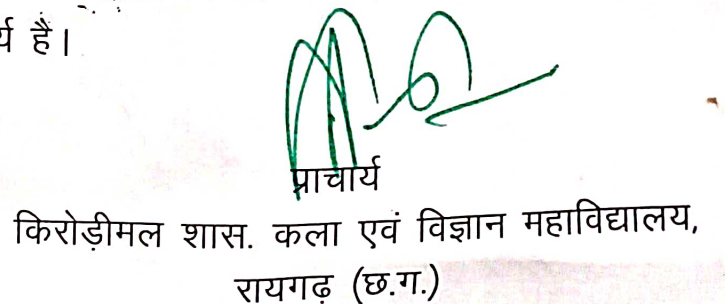 र्य है।
प्राचार्य
किरोड़ीमल शास. कला एवं विज्ञान महाविद्यालय,
रायगढ़ (छ.ग.)